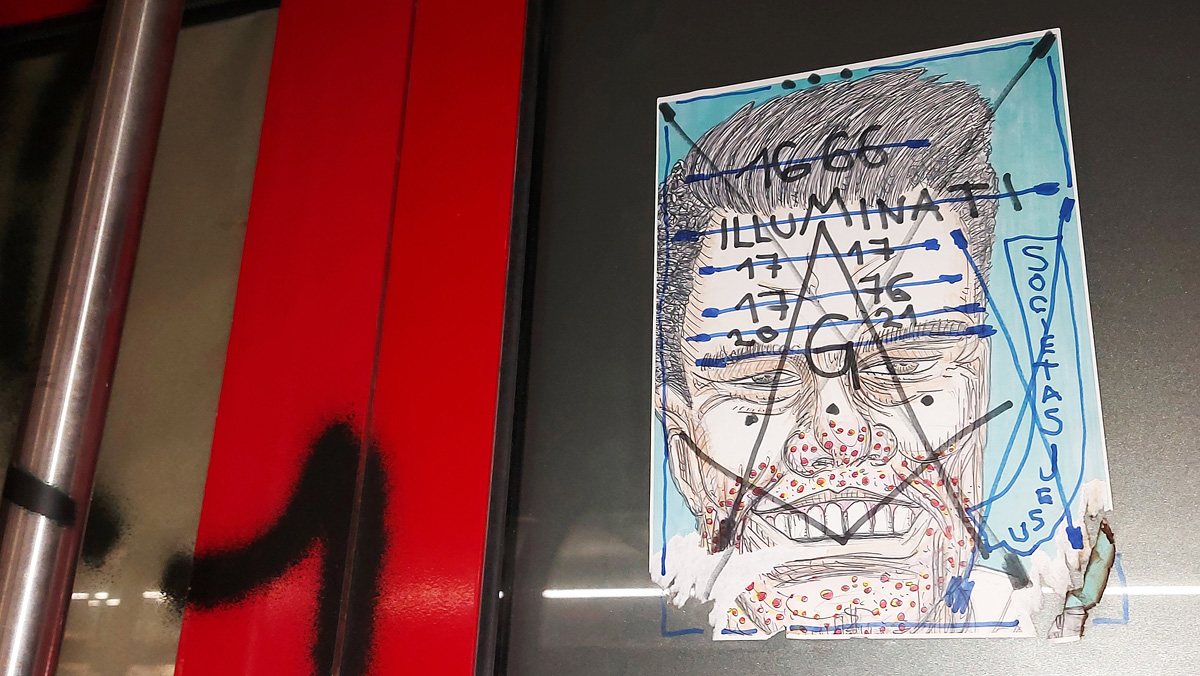 1666
ILLUMINATI
17 17
17 76
20 21
G
SOCIETAS JESUS
1